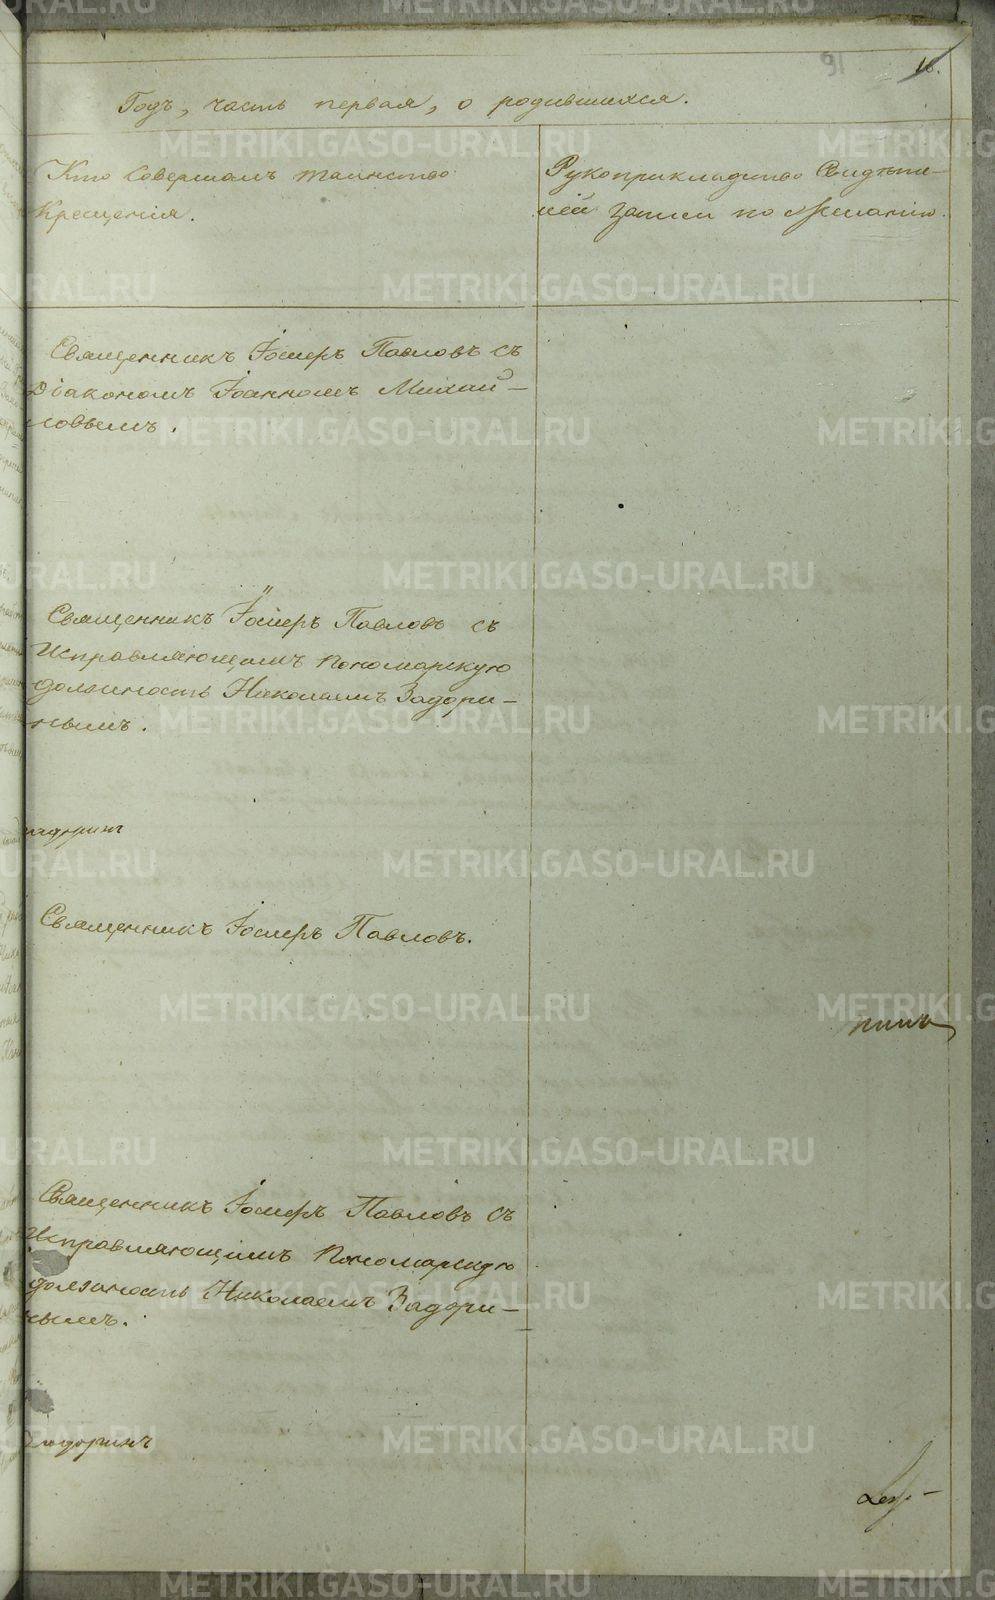 16.
91
Годъ, часть первая, о родившихся.
Кто Совершалъ таинство
Крещенія.
Рукоприкладство Свидѣте-
лей Записи по Желанію.
Священникъ Іосифъ Павловъ съ
Діакономъ Іоанномъ Михай-
ловымъ.
Священникъ Іосифъ Павловъ съ
Исправляющимъ Пономарскую
должность Николаемъ Задори-
нымъ.
Задоринъ
Священникъ Іосифъ Павловъ.
Священникъ Іосифъ Павловъ съ
Исправляющимъ Пономарскую
должность Николаемъ Задори-
нымъ.
Задоринъ
METRIKI.GASO-URAL.RU